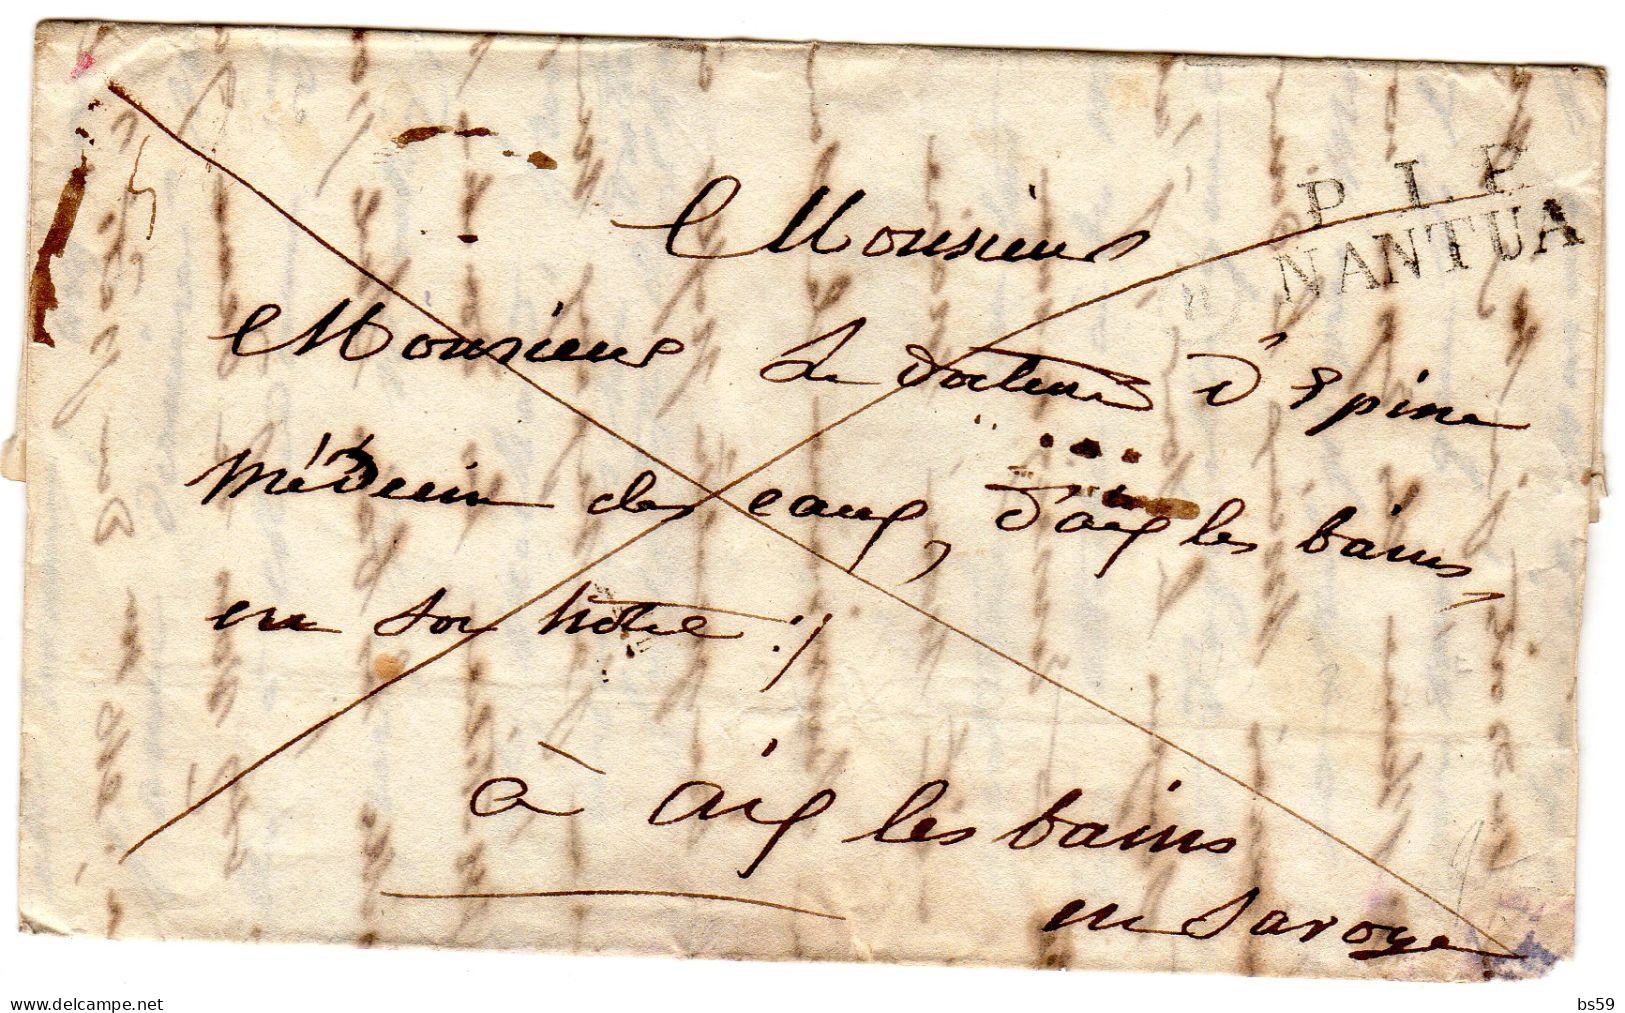 P. I. P
NANTUA
Monsieur
Monsieur Le docteur d'Espine
Médecin des eaux, d'aix les bains,
en son hôtel :/
à aix les bains
en Savoye
delcampe.net
bs59